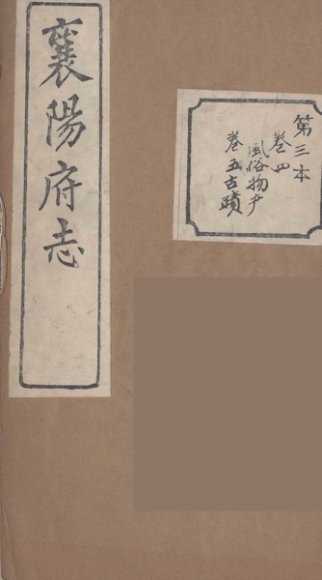 襄陽府志
第三本
卷四
風俗物产
卷五古蹟